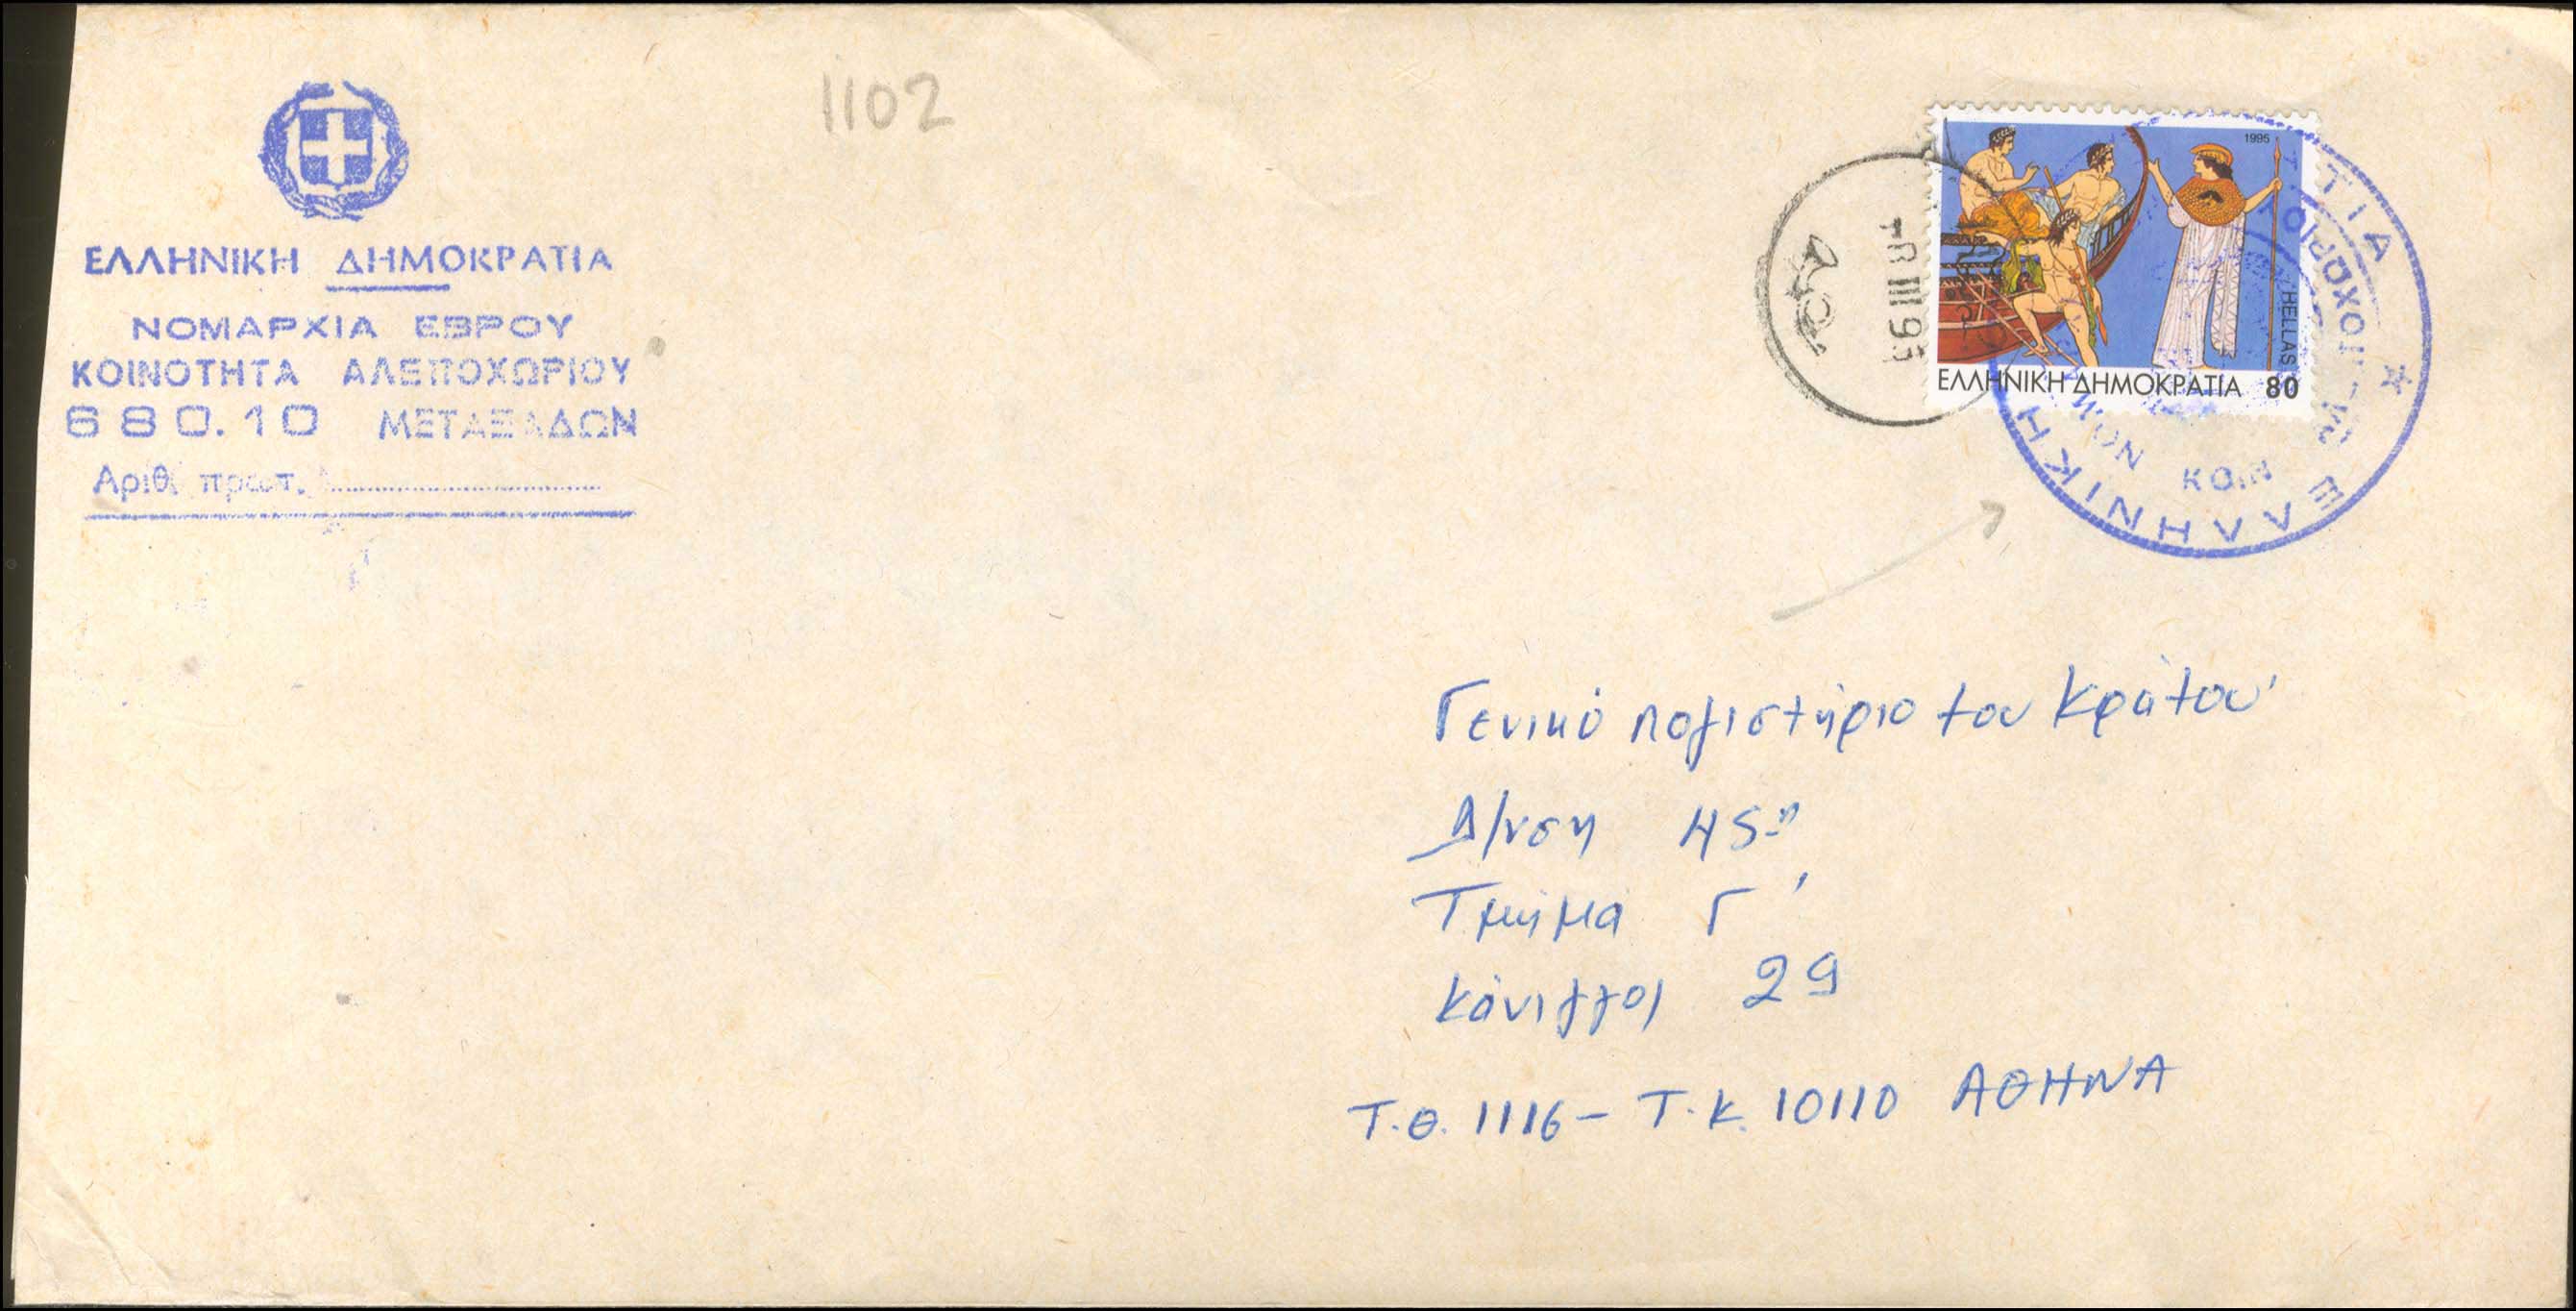 1102
ΕΛΛΗΝΙΚΗ ΔΗΜΟΚΡΑΤΙΑ
ΝΟΜΑΡΧΙΑ ΕΒΡΟΥ
ΚΟΙΝΟΤΗΤΑ ΑΛΕΠΟΧΩΡΙΟΥ
680.10 ΜΕΤΑΞΑΔΩΝ
Αριθ. πρωτ.
1995
HELLAS
ΕΛΛΗΝΙΚΗ ΔΗΜΟΚΡΑΤΙΑ 80
ΕΛΛΗΝΙΚΗ
ΤΙΑ
ΚΟΙΝ
Γενικό Λογιστήριο του Κράτου
Δ/νση
Τμήμα Γ'
Κάνιγγος 29
Τ.Θ. 1116 - Τ.Κ. 10110 ΑΘΗΝΑ